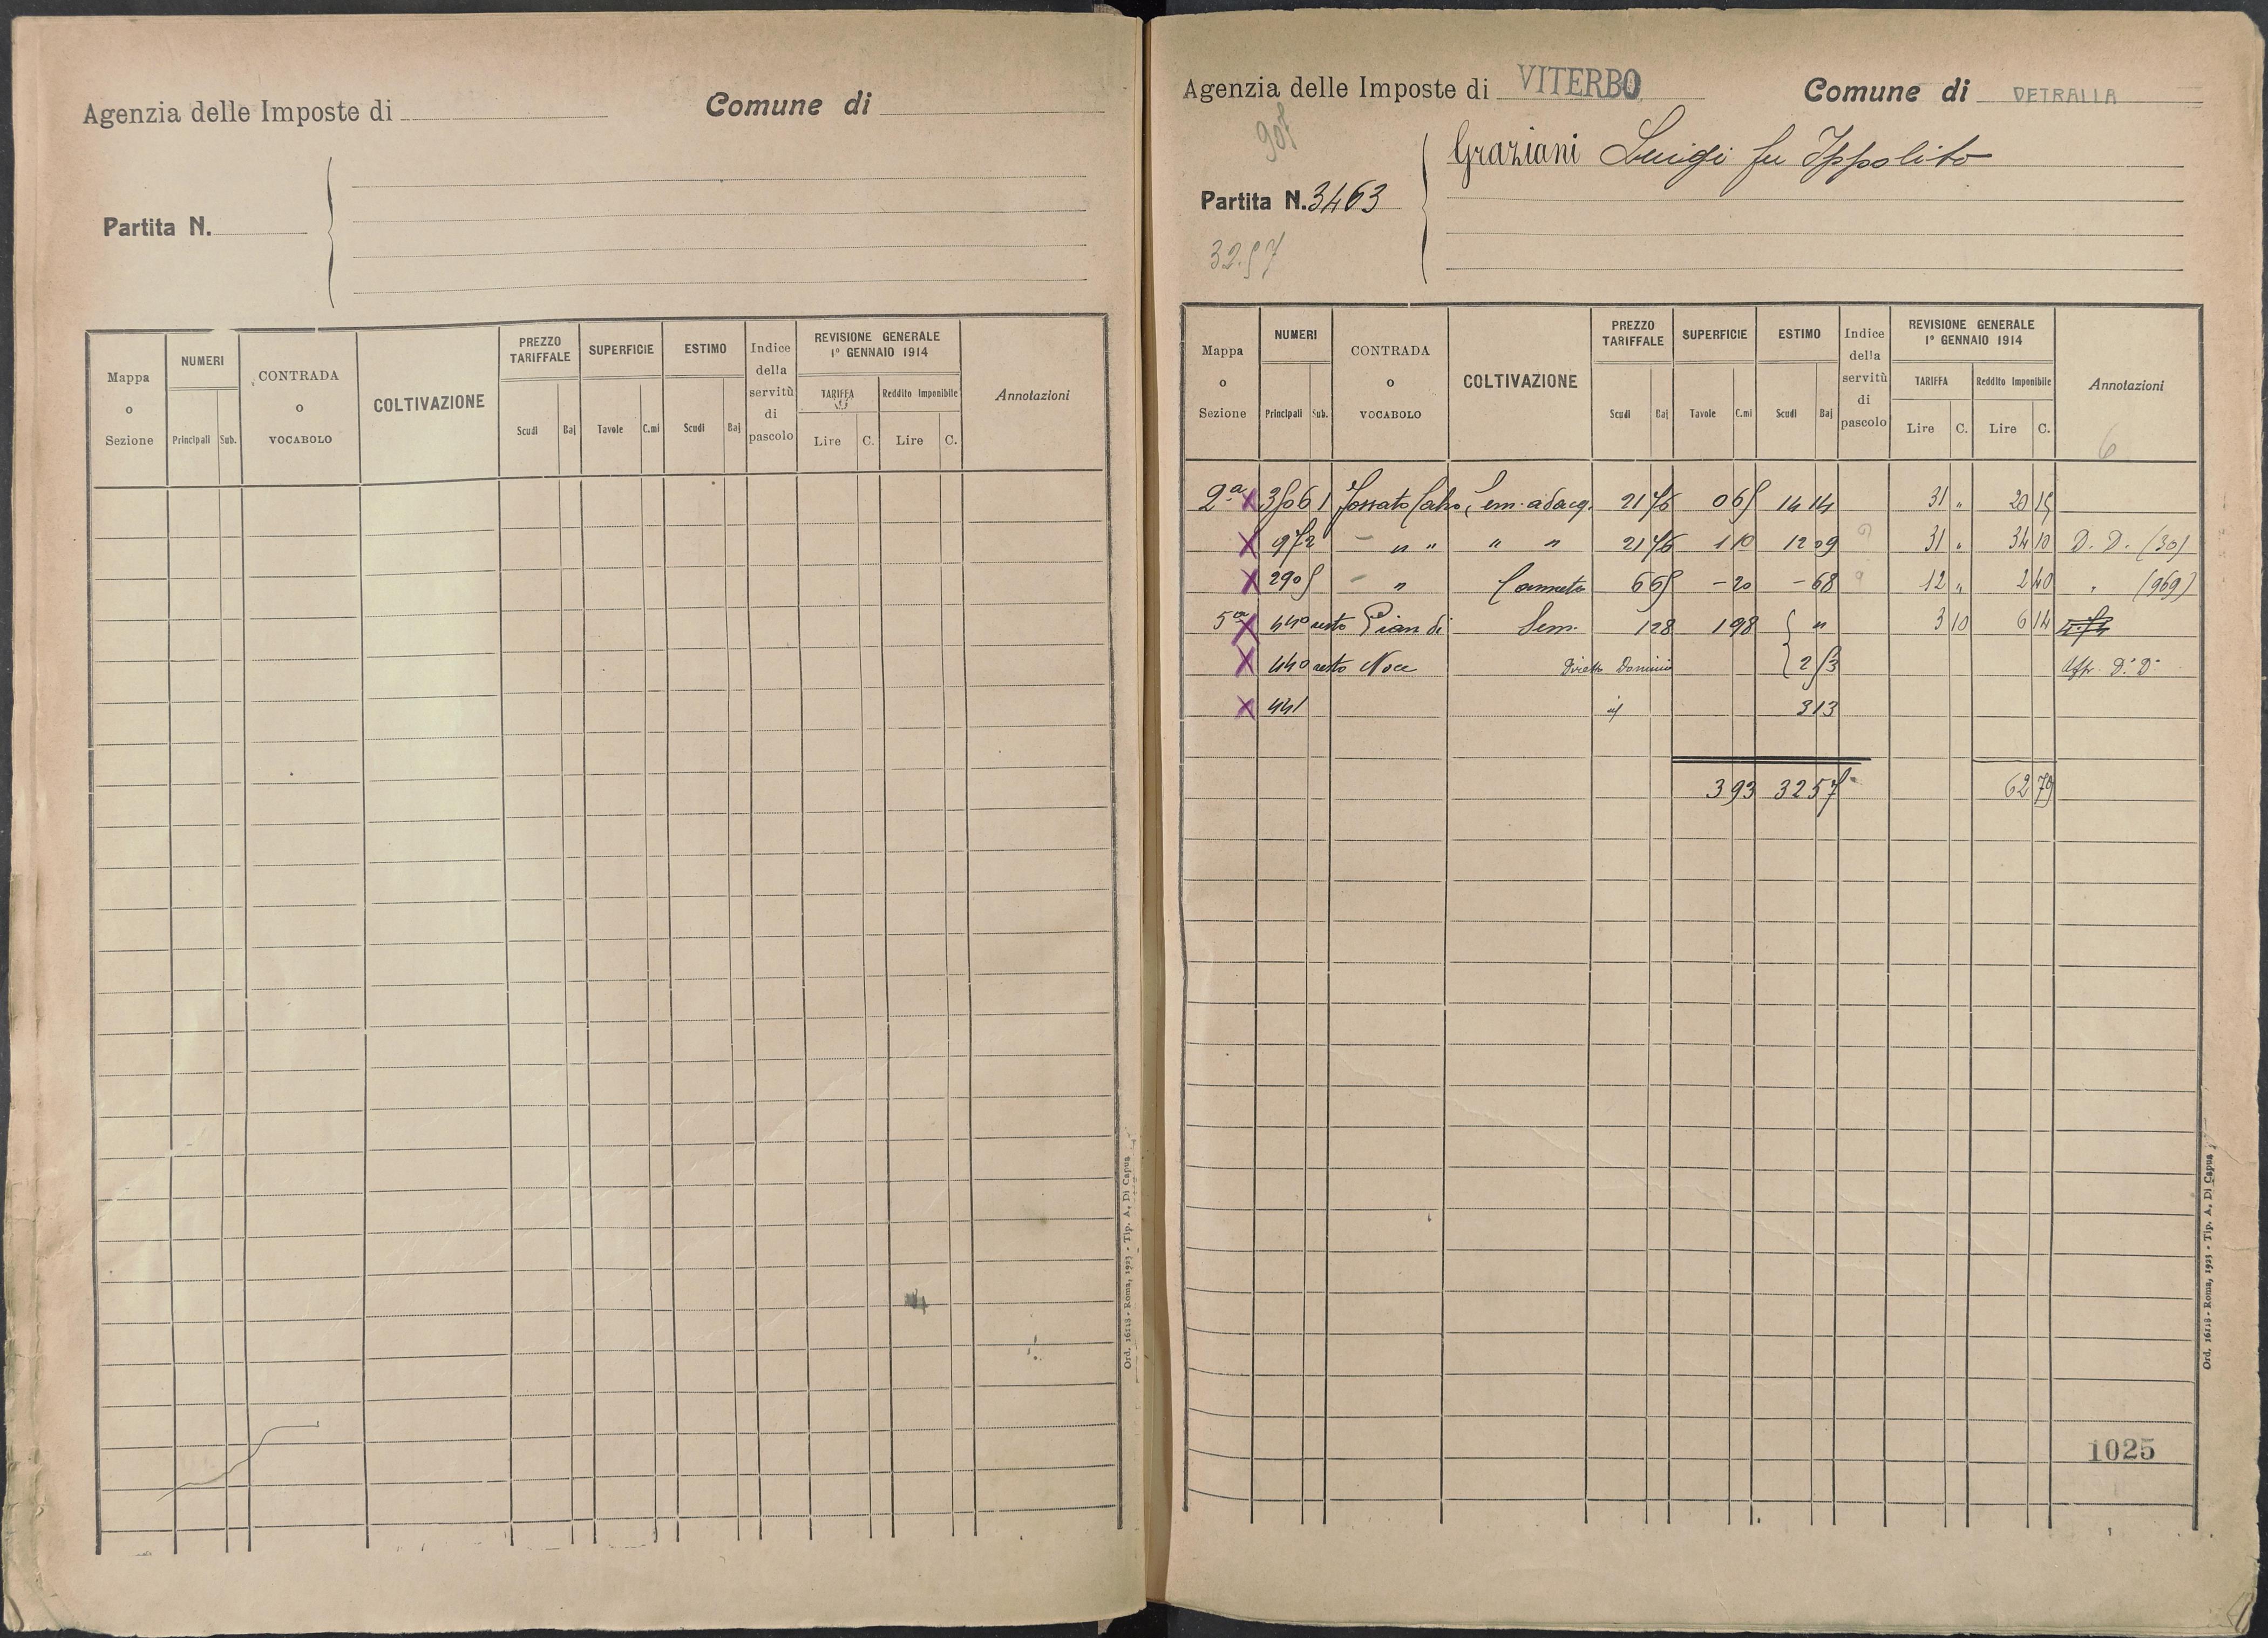 Agenzia delle Imposte di
Comune di
Partita N.
Mappa o Sezione
NUMERI
Principali Sub.
CONTRADA o VOCABOLO
COLTIVAZIONE
PREZZO TARIFFALE
Scudi Baj
SUPERFICIE
Tavole C.mi
ESTIMO
Scudi Baj
Indice della servitù di pascolo
REVISIONE GENERALE
1° GENNAIO 1914
TARIFFA Reddito Imponibile
Lire C. Lire C.
Annotazioni
Ord. 16118 - Roma, 1923 - Tip. A. Di Capua
Agenzia delle Imposte di VITERBO
Comune di VETRALLA
907
Graziani Luigi fu Ippolito
Partita N. 3463
32.57
Mappa o Sezione
NUMERI
Principali Sub.
CONTRADA o VOCABOLO
COLTIVAZIONE
PREZZO TARIFFALE
Scudi Baj
SUPERFICIE
Tavole C.mi
ESTIMO
Scudi Baj
Indice della servitù di pascolo
REVISIONE GENERALE
1° GENNAIO 1914
TARIFFA Reddito Imponibile
Lire C. Lire C.
Annotazioni
6
2ª X 3506 1 Fossato Calvo Sem. adacq. 21 76 0 65 14 14 31 " 20 15
X 972 - " " " " 21 76 1 10 12 09 31 " 34 10 D. D. (30)
X 2905 - " Canneto 6 65 - 20 - 68 12 " 2 40 " (969)
5ª X 440 resto Pian di Sem. 1 28 1 98 { " 3 10 6 14
X 440 resto Noce Diretto Dominio { 2 53 D. D.
X 441 id 3 13
3 93 32 57 62 79
1025
Ord. 16118 - Roma, 1923 - Tip. A. Di Capua